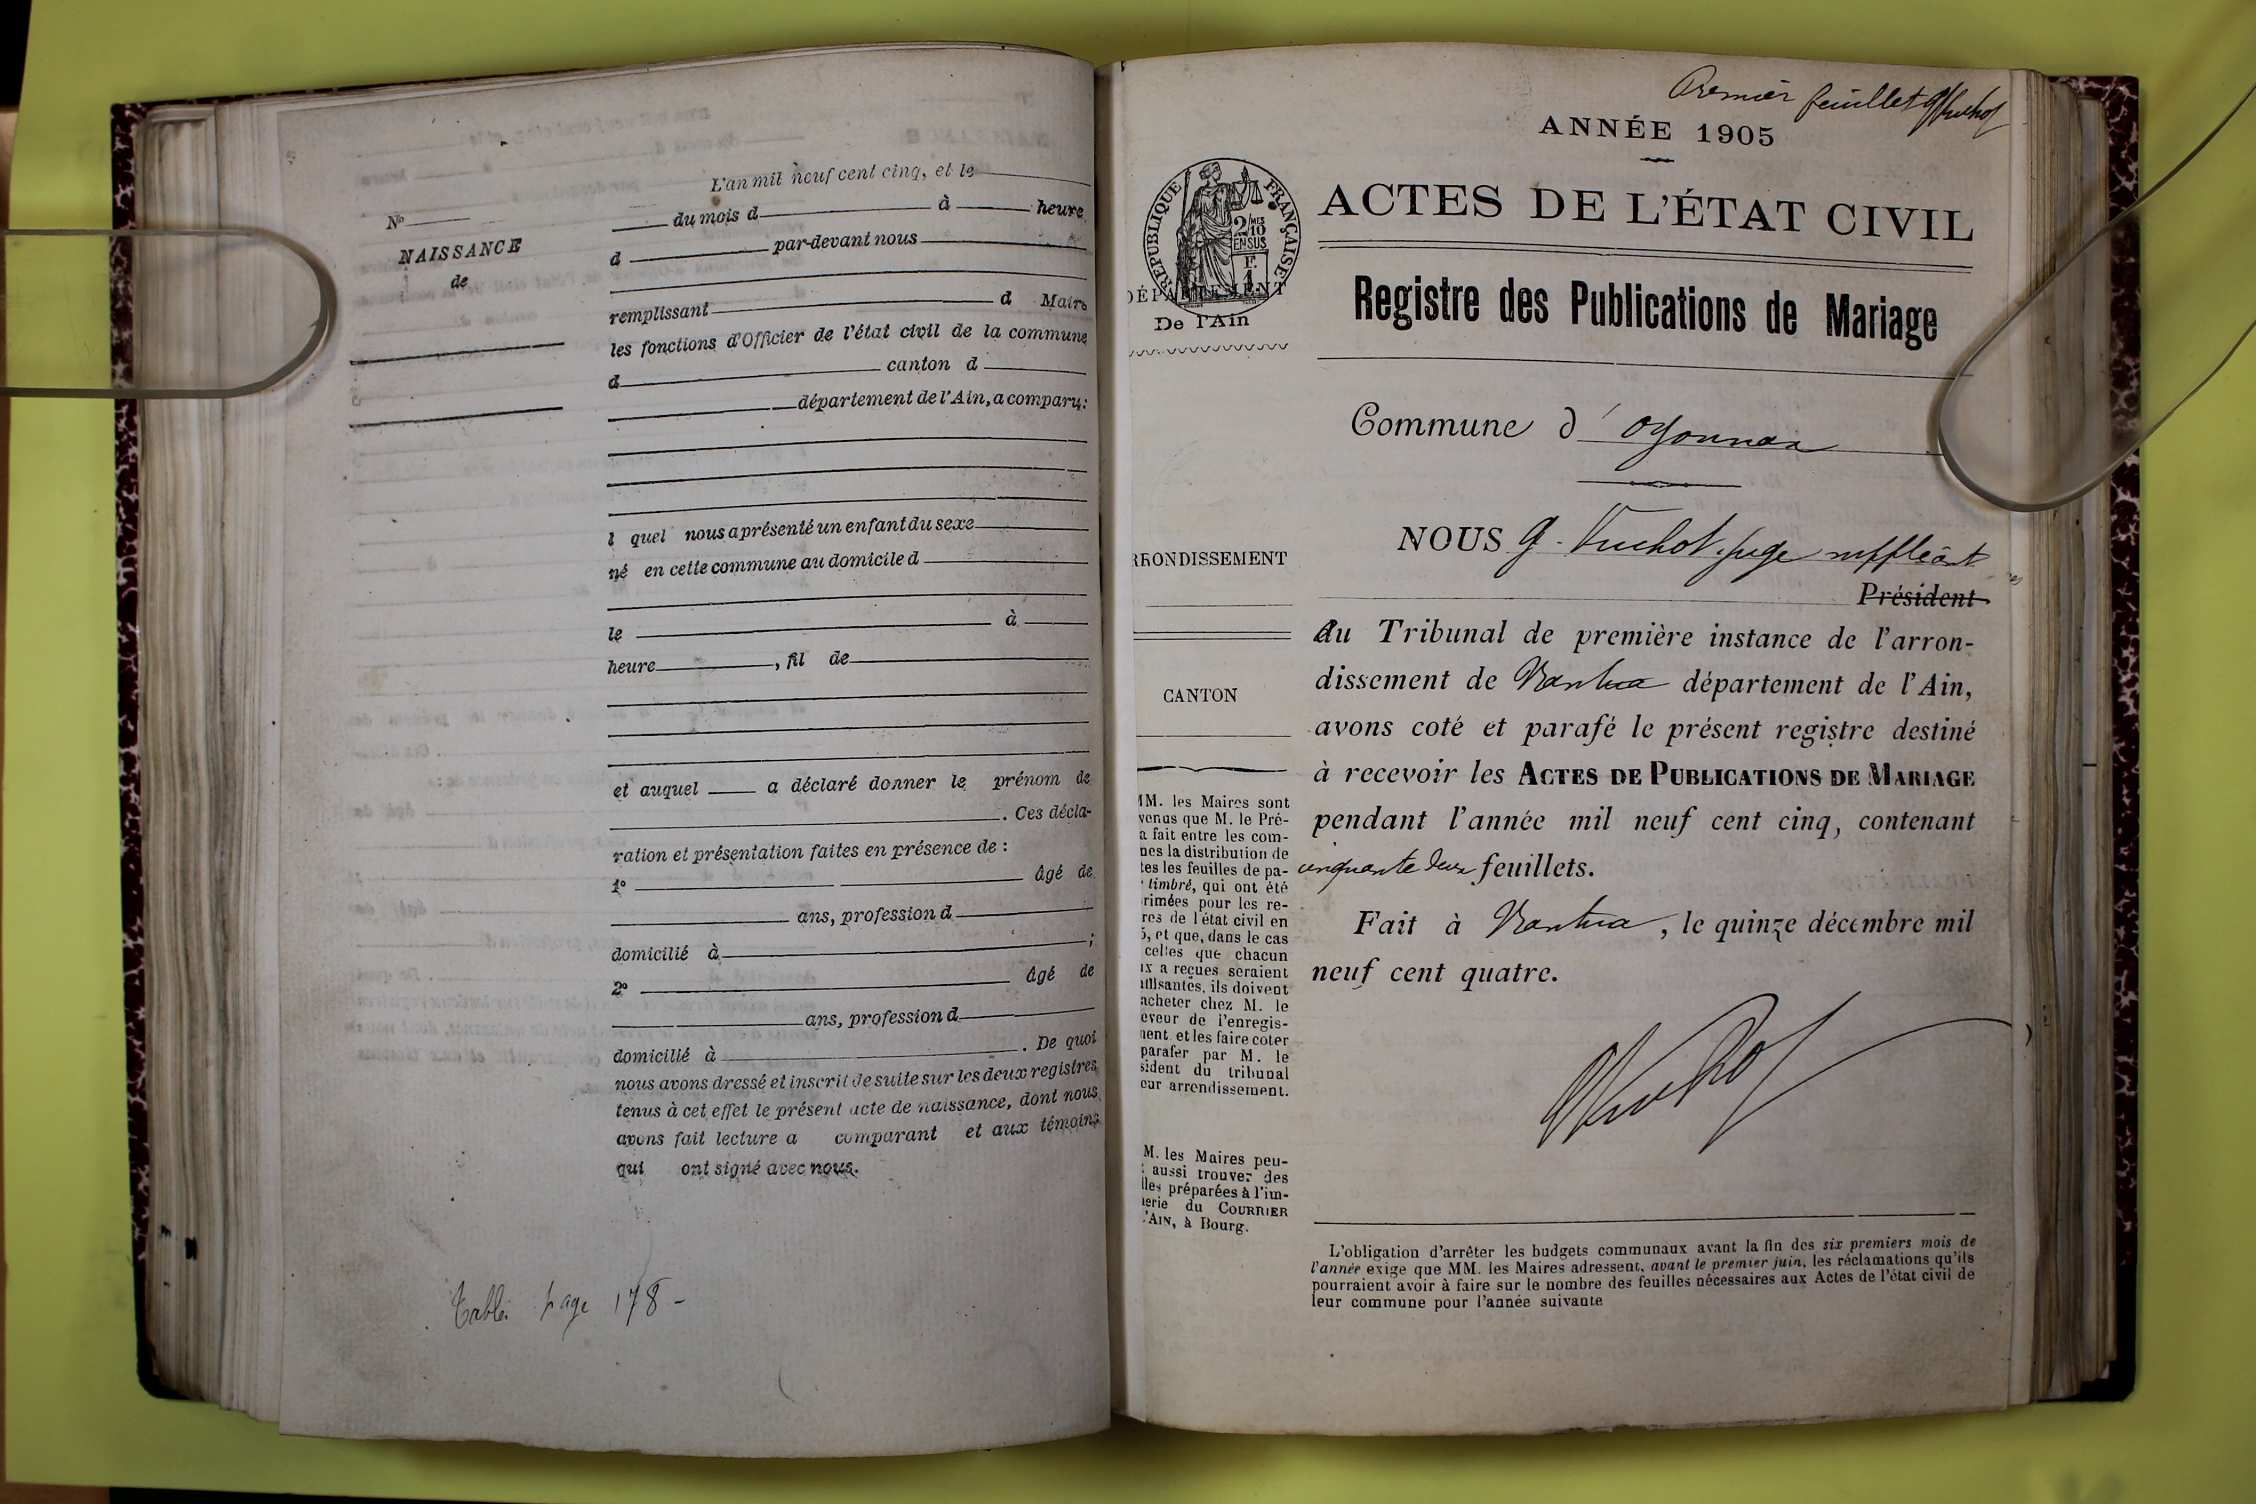 L'an mil neuf cent cinq, et le
N°
du mois d à heure
NAISSANCE
de
d par-devant nous
remplissant d Maire
les fonctions d'Officier de l'état civil de la commune
d canton d
département de l'Ain, a comparu:
l quel nous a présenté un enfant du sexe
né en cette commune au domicile d
le à
heure , fil de
et auquel a déclaré donner le prénom de
. Ces décla-
ration et présentation faites en présence de :
1° âgé de
ans, profession d
domicilié à ;
2° âgé de
ans, profession d
domicilié à . De quoi
nous avons dressé et inscrit de suite sur les deux registres
tenus à cet effet le présent acte de naissance, dont nous
avons fait lecture a comparant et aux témoins
qui ont signé avec nous.
Table page 178 -
Premier feuillet
ANNÉE 1905
RÉPUBLIQUE FRANÇAISE
2/10
MES
EN SUS
F.
1
DÉPARTEMENT
De l'Ain
ACTES DE L'ÉTAT CIVIL
Registre des Publications de Mariage
Commune d'Oyonnax
RRONDISSEMENT
CANTON
MM. les Maires sont
venus que M. le Pré-
a fait entre les com-
nes la distribution de
tes les feuilles de pa-
timbré, qui ont été
rimées pour les re-
res de l'état civil en
5, et que, dans le cas
celles que chacun
ux a reçues seraient
uffisantes, ils doivent
acheter chez M. le
eveur de l'enregis-
nent et les faire coter
parafer par M. le
sident du tribunal
eur arrondissement.
M. les Maires peu-
t aussi trouver des
lles préparées à l'im-
nerie du COURRIER
L'AIN, à Bourg.
NOUS G. Vuchot juge suppléant
Président
du Tribunal de première instance de l'arron-
dissement de Nantua département de l'Ain,
avons coté et parafé le présent registre destiné
à recevoir les ACTES DE PUBLICATIONS DE MARIAGE
pendant l'année mil neuf cent cinq, contenant
cinquante deux feuillets.
Fait à Nantua, le quinze décembre mil
neuf cent quatre.
L'obligation d'arrêter les budgets communaux avant la fin des six premiers mois de
l'année exige que MM. les Maires adressent, avant le premier juin, les réclamations qu'ils
pourraient avoir à faire sur le nombre des feuilles nécessaires aux Actes de l'état civil de
leur commune pour l'année suivante